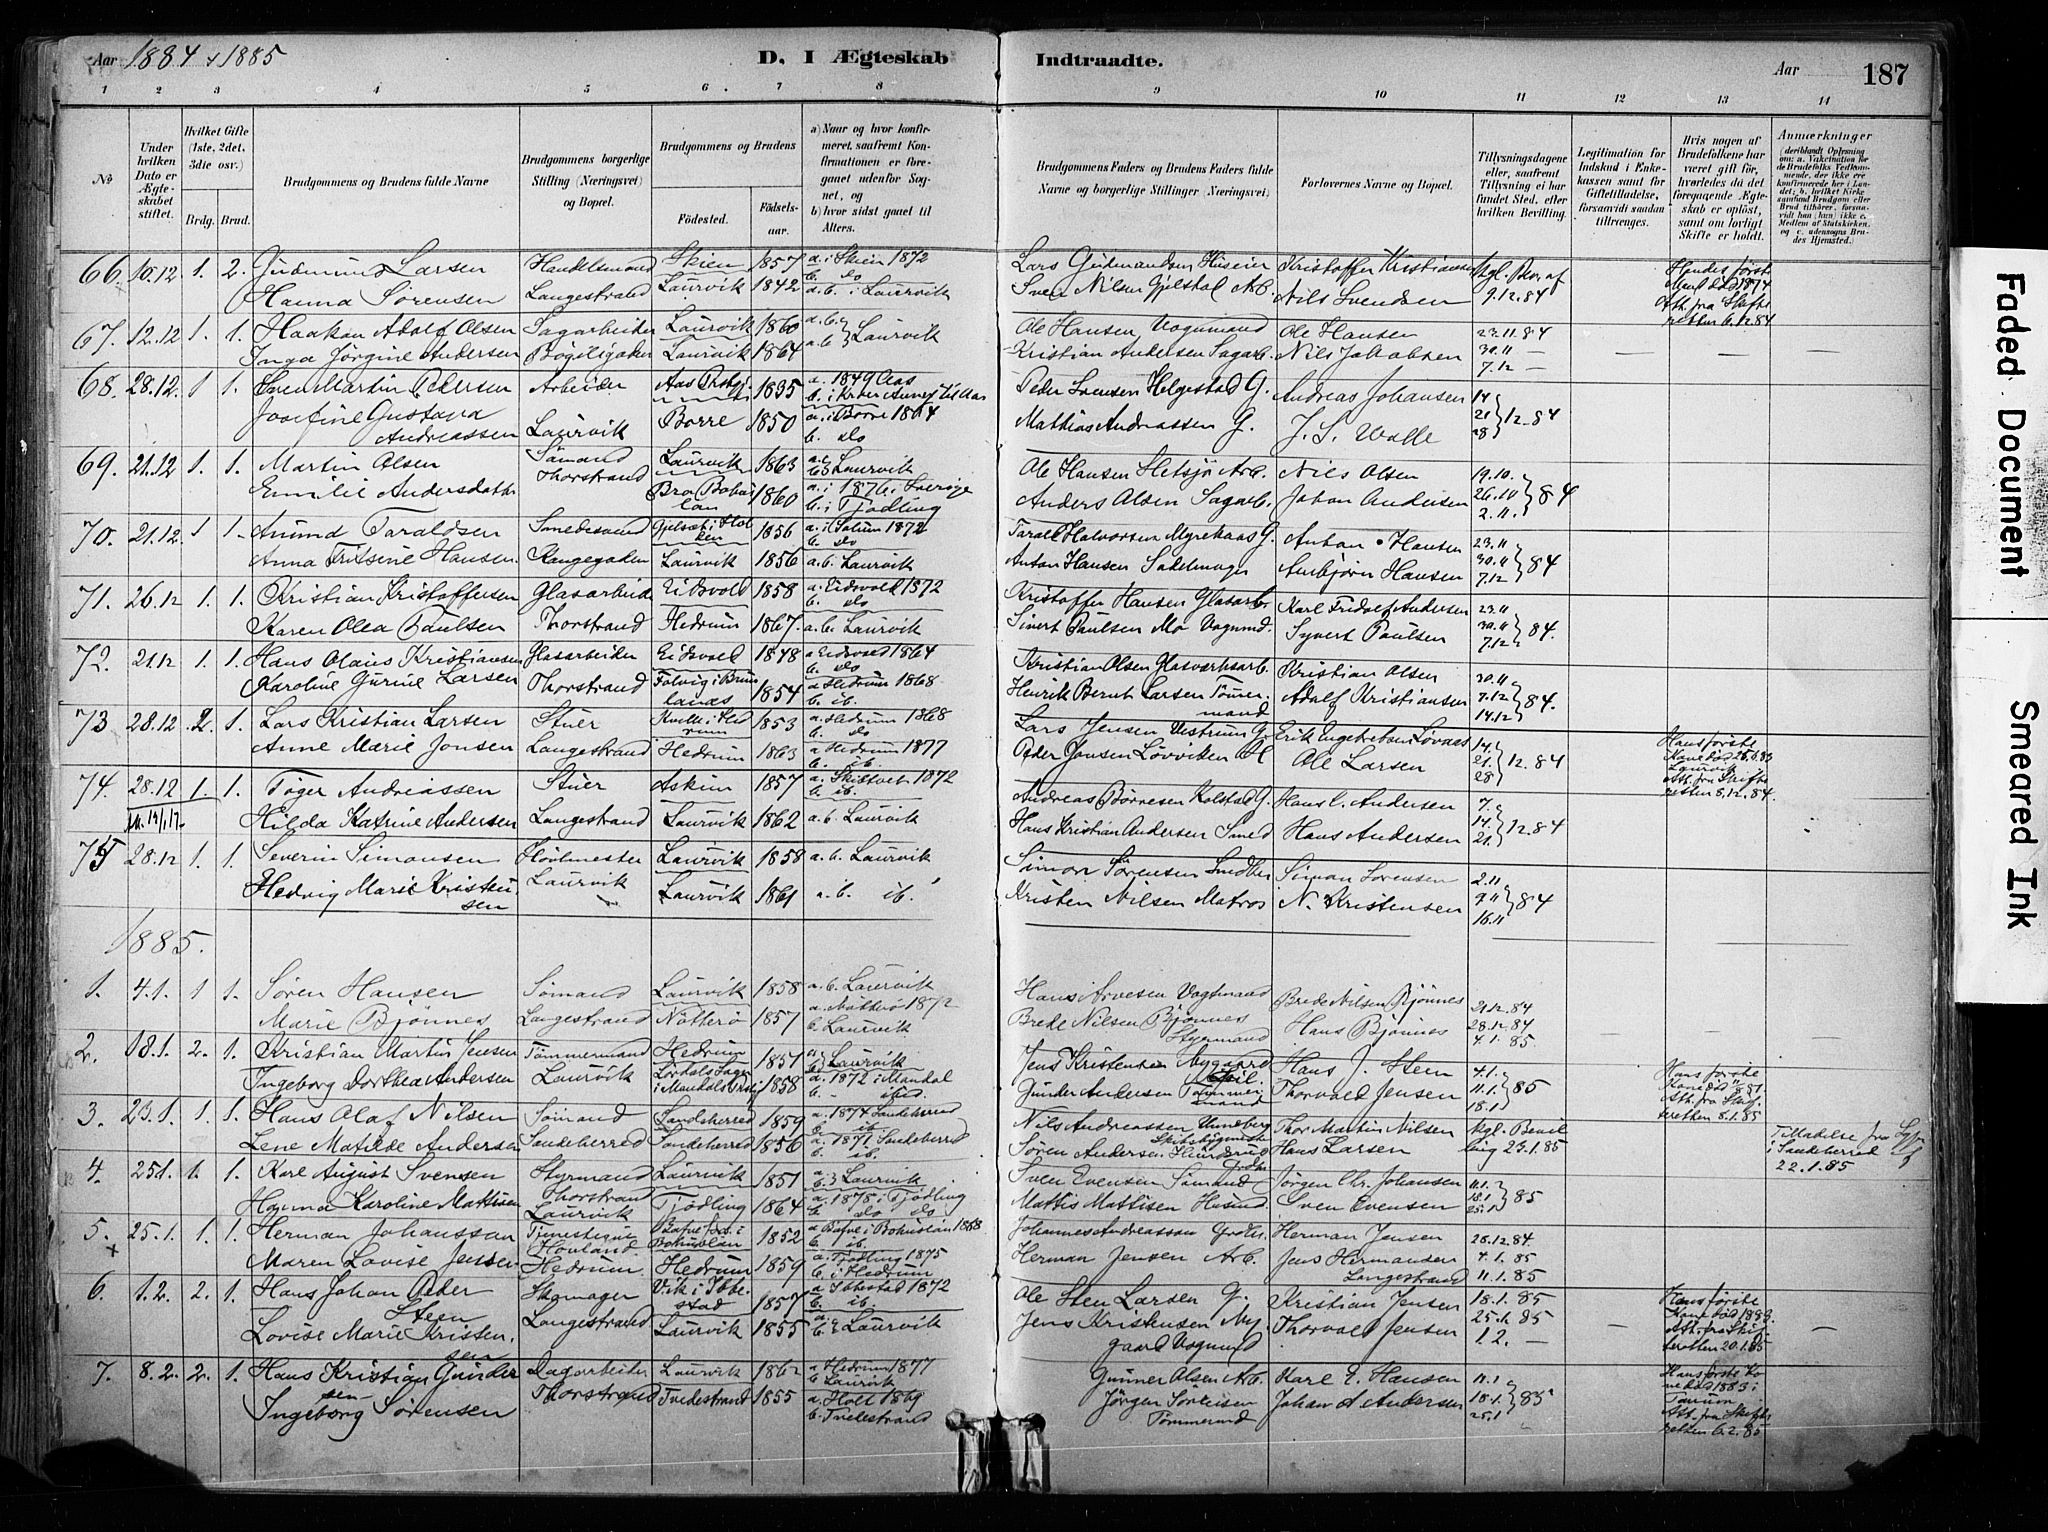 Aar 1884 & 1885
D. I Ægteskab Indtraadte.
Aar 187
1 2 3 4 5 6. 7 8 9 10 11 12 13 14
No
Under hvilken Dato er Ægteskabet stiftet.
Hvilket Gifte (1ste, 2det, 3die osv.)
Brdg. Brud.
Brudgommens og Brudens fulde Navne
Brudgommens borgerlige Stilling (Næringsvei) og Bopæl.
Brudgommens og Brudens
Fødested. Fødselsaar.
a) Naar og hvor konfirmeret, saafremt Konfirmationen er foregaaet udenfor Sognet, og
b) hvor sidst gaaet til Alters.
Brudgommens Faders og Brudens Faders fulde Navne og borgerlige Stillinger (Næringsvei).
Forlovernes Navne og Bopæl.
Tillysningsdagene eller, saafremt Tillysning ei har fundet Sted, efter hvilken Bevilling.
Legitimation for Indskud i Enkekassen samt for Giftetilladelse, forsaavidt saadan tiltrænges.
Hvis nogen af Brudefolkene har været gift før, hvorledes da det foregaaende Ægteskab er opløst, samt om lovligt Skifte er holdt.
Anmærkninger
66. 10.12 1. 2. Gudmund Larsen Handelsmand Skien 1857 a. i Skien 1872 b. do
Hanna Sørensen Langestrand Laurvik 1842 a.b. i Laurvik
Kristoffer Kristiansen Kgl. Bev. af
Nils Svendsen 9.12.84
Hendes første Mand død 1874 Att. fra Skifteretten 6.12.84
67. 12.12 1. 1. Haakan Adolf Olsen Sagarbeider Laurvik 1860 a.b.
Inga Jørgine Andersen Bøgeligaden Laurvik 1864 a.b. Laurvik
Ole Hansen Vognmand Ole Hansen 23.11.84
Kristian Andersen Sagarb. Nils Jakobsen 30.11 —
7.12 —
68. 28.12. 1 1. Sven Martin Pedersen Arbeider 1835 a. 1849 Aas
Josefine Gustava Andreassen Laurvik Borre 1850 a. i Borre 1864 b. do
Peder Svensen Helgestad G. Andreas Johansen 14
Mathias Andreassen G. J. S. Walle 21 28 12.84
69. 21.12 1. 1. Martin Olsen Sømand Laurvik 1863 Laurvik
Emilie Andersdatter Thorstrand 1860 a. i 1876 i Sverige b. i Tjødling
Ole Hansen Arb. Nils Olsen 19.10.
Anders Olsen Sagarb. Johan Andersen 26.10 2.11. 84
70. 21.12. 1 1. Amund Taraldsen Smedesvend 1856 a. i Solum 1872 b. do
Anna Hansen Langegaden Laurvik 1856 a.b. Laurvik
Tarald Halvorsen Myrekaas G. Anton Hansen 23.11
Anton Hansen Sadelmager Aubjørn Hansen 30.11 7.12 84
71. 26.12 1. 1. Kristian Kristoffersen Glasarbeider Eidsvold 1858 a. Eidsvold 1872 b. do
Karen Olea Paulsen Thorstrand Hedrum 1867 a.b. Laurvik
Kristoffer Hansen Glasarb. Karl Fridolf Andersen 23.11
Sivert Paulsen Mo Vognmd. Syvert Paulsen 30.11 7.12 84.
72. 21.12 1. 1. Hans Olaus Kristiansen Glasarbeider Eidsvold 1848 a Eidsvold 1864 b. do
Karoline Gurine Larsen Thorstrand Folvig i Brunlanæs 1854 a Hedrum 1868 b. ib.
Kristian Olsen Glasværksarb. Kristian Olsen 30.11
Henrik Bernt Larsen Tømmermand Adolf Kristiansen 7.12 14.12 84.
73 28.12 2. 1. Lars Kristian Larsen Stuer Kvelle i Hedrum 1853 a. Hedrum 1868 b. do
Anne Marie Jonsen Langestrand Hedrum 1863 a Hedrum 1877 b. ib.
Lars Jensen Vestrum G. Erik Ingebretsen Løvaas 14.
Peder Jonsen Løvviken H Ole Larsen 21. 28 12.84
Hans første Kone død 26.6.83 Laurvik Att. fra Skifteretten 8.12.84.
74. 28.12 1. 1. Tøger Andreassen Stuer Askim 1857 a. Skiftvet 1872 b. ib.
Hilda Katrine Andersen Langestrand Laurvik 1862 a.b. Laurvik
Andreas Børresen Kolstad G. Hans C. Andersen 7.
Hans Kristian Andersen Smed Hans Andersen 14. 21. 12.84
75 28.12 1. 1. Severin Simonsen Høvlmester Laurvik 1858 a.b. Laurvik
Hedvig Marie Kristensen Laurvik Laurvik 1861 a.b. ib.
Simon Sørensen Simon Sørensen 2.11
Kristen Nilsen Matros N. Kristensen 9.11 16.11 84
1885.
1. 4.1. 1 1. Søren Hansen Sømand Laurvik 1858 a.b. Laurvik
Marie Bjønnes Langestrand Nötterö 1857 a. Nötterö 1872 b. Laurvik
Hans Arvesen Vogtmand Brede Nilsen Bjönnes 21.12.84
Brede Nilsen Bjönnes Styrmand Hans Bjönnes 28.12.84 4.1.85
2. 18.1. 2. 1. Kristian Martin Jensen Tømmermand Hedrum 1851 Laurvik
Ingeborg Dorthea Andersen Laurvik 1858 a. 1872 i Mandal b. ibid.
Jens Kristensen Nygaard Hans J. Steen 4.1.
Gunder Andersen Tømmermand Thorvald Jensen 11.1. 18.1 85
Hans første Kone død Att. fra Skifteretten 8.1.85
3. 23.1. 1. 1. Hans Olaf Nilsen Sømand Sandeherred 1859 a. 1874 Sandeherred b. ib.
Lene Matilde Andersen Sandeherred Sandeherred 1856 a. 1871 Sandeherred b. ib.
Nils Andreassen Thor Martin Nilsen kgl. Bevilling 23.1.85
Søren Andersen Hans Larsen
Tilladelse fra i Sandeherred 22.1.85
4. 25.1. 1. 1. Karl August Svensen Styrmand Laurvik 1851 Laurvik
Hanna Karoline Mattisen Thorstrand Laurvik Tjødling 1864 a. 1878 i Tjødling b. do do
Sven Evensen Sømand Jørgen Chr. Johansen 11.1.
Mattis Mattisen Husmd. Sven Evensen 18.1 25.1 85
5. 25.1. 1. 1. Herman Johanssan Hovland Bohuslän 1852 a Bafve i Bohuslän 1868 b. ib.
Maren Lovise Jensen Hedrum. Hedrum 1859 a. Tjødling 1875 b. i Hedrum
Johannes Andreassan Herman Jensen 28.12.84.
Herman Jensen Arb. Jens Hermansen Langestrand 4.1.85 11.1.85
6. 1.2. 2. 1. Hans Johan Peder Steen Skomager Vik i Ibbestad 1857 a Ibbestad 1872 b. ib.
Lovise Marie Kristensen Langestrand Laurvik 1855 Laurvik
Ole Steen Larsen G. Kristian Jensen 18.1.85
Jens Kristensen Nygaard Vognmd Thorvald Jensen 25.1.85 1.2. —
Hans første Kone død Att. fra Skifteretten 20.1.85
7. 8.2. 2. 1. Hans Kristian Gundersen Sagarbeider Laurvik 1862 a. Hedrum 1877 b Laurvik
Ingeborg Sørensen Thorstrand Tvedestrand 1855 a. Holt 1869 b. Tvedestrand
Gunner Olsen Arb. Karl E. Hansen 11.1
Jørgen Sørensen Tømmermd Johan A Andersen 18.1. 25.1 85
Hans første Kone død 1883 i Att. fra Skifteretten 6.2.85
Faded Document
Smeared Ink